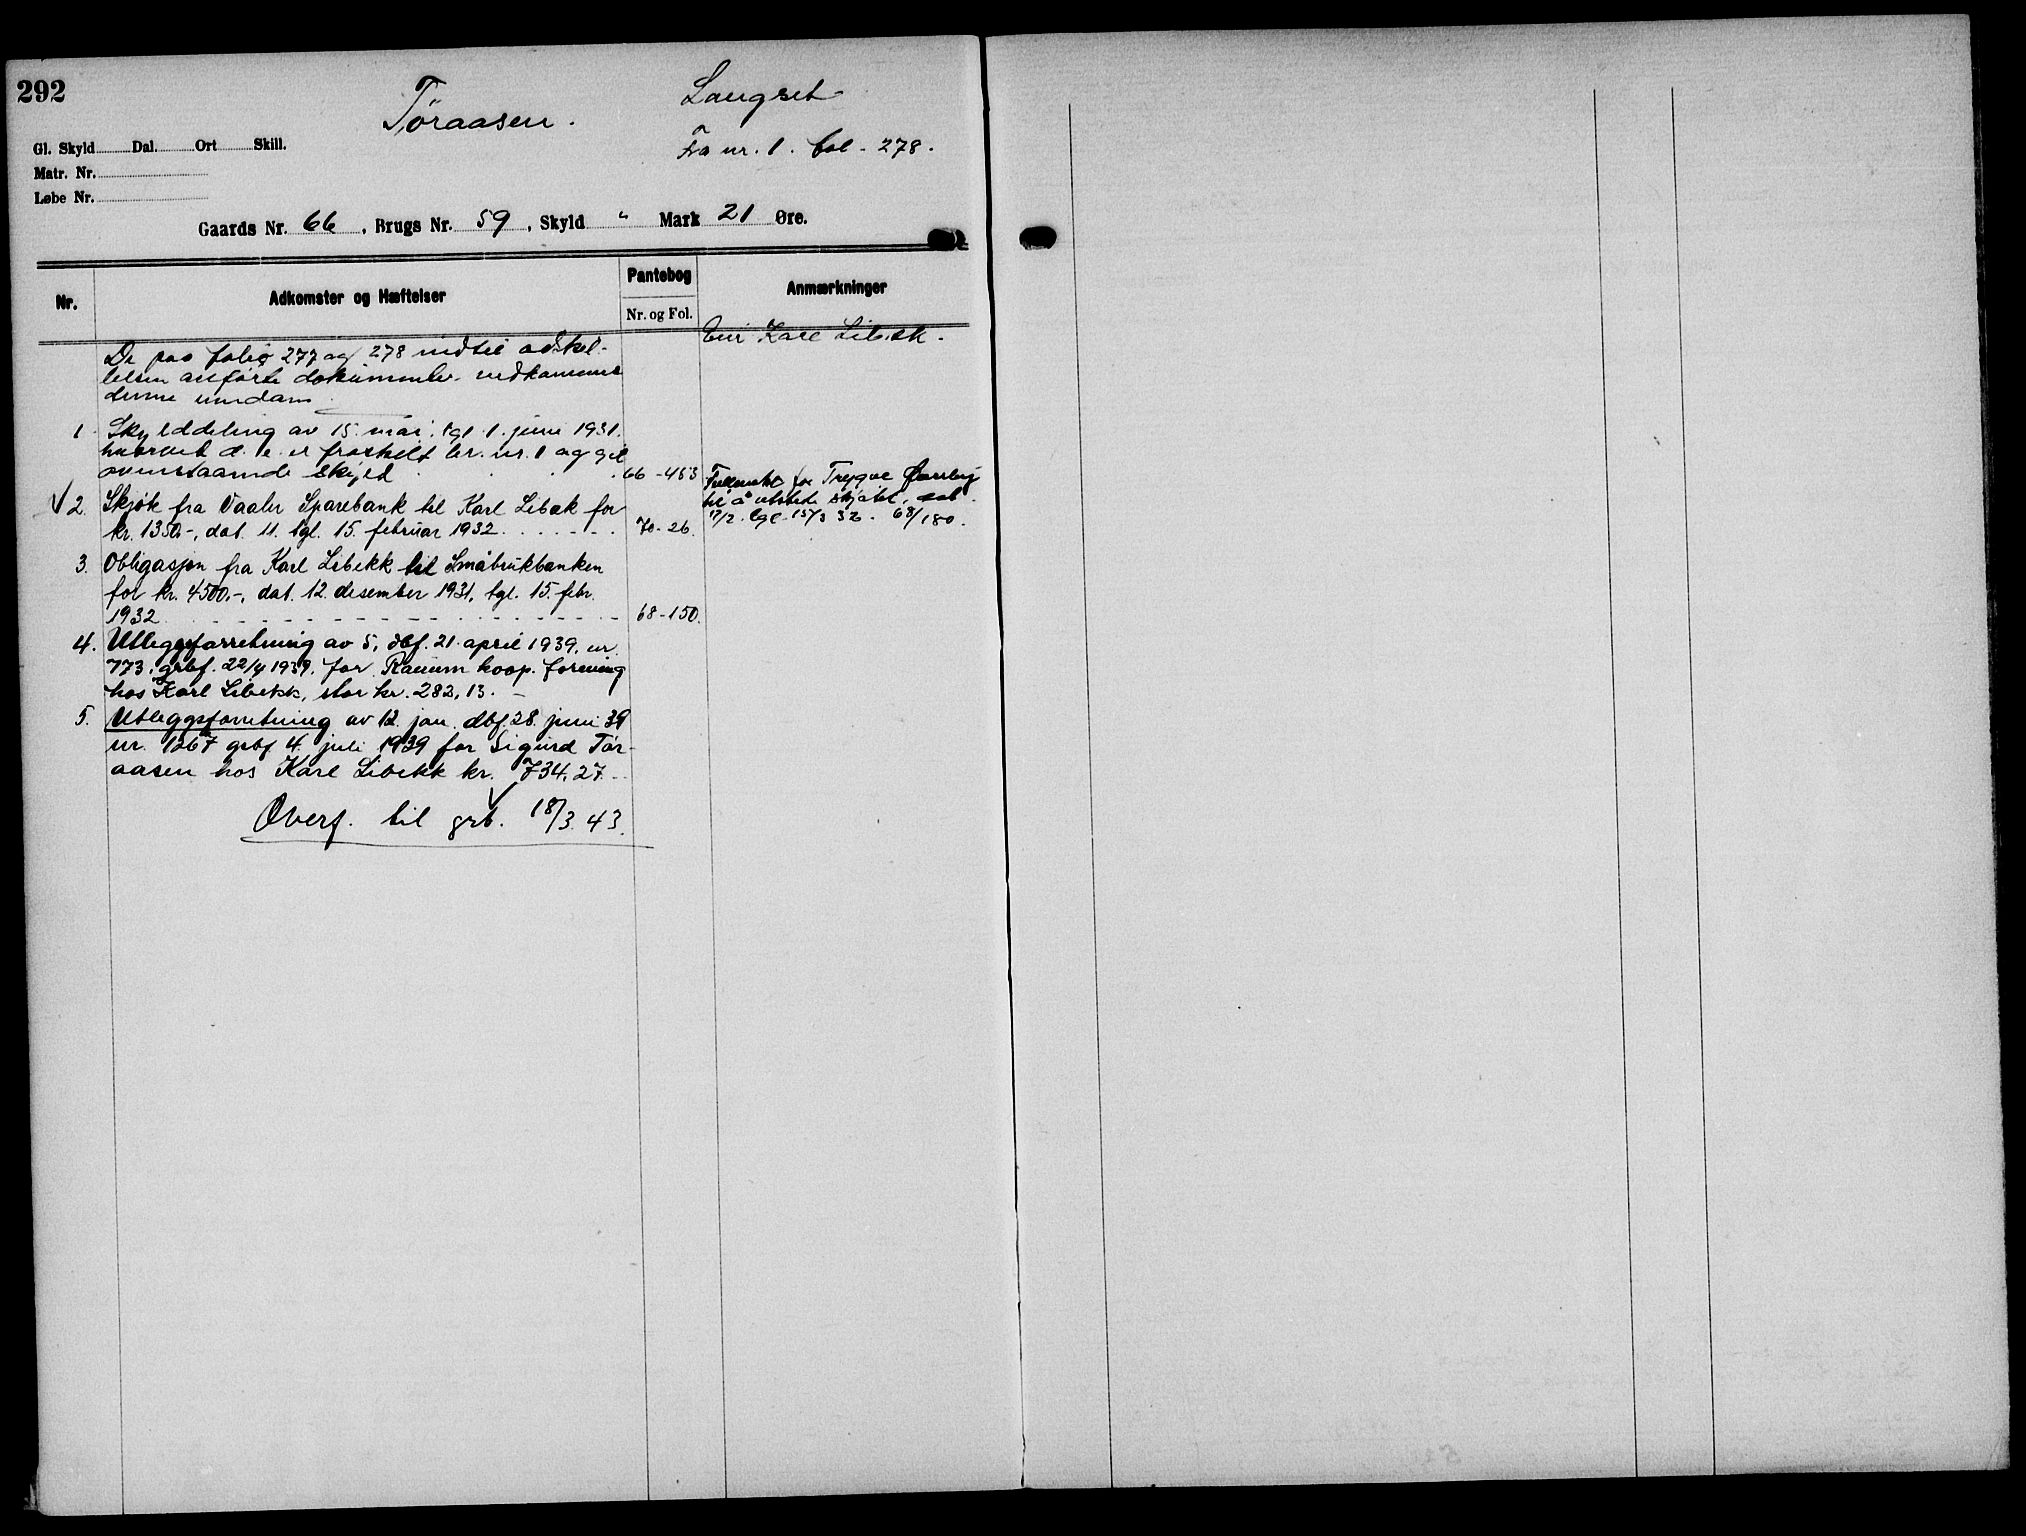 292
Tøraasen.
Langset
Fra nr. 1. fol - 278.
Gl. Skyld Dal. Ort Skill.
Matr. Nr.
Løbe Nr.
Gaards Nr. 66, Brugs Nr. 59, Skyld " Mark 21 Øre.
Nr.
Adkomster og Hæftelser
Pantebog
Nr. og Fol.
Anmærkninger
Eier Karl Libæk.
De paa folio 277 og 278 indtil adskil-
lelsen anførte dokumenter vedkommer
denne eiendom.
1. Skylddeling av 15. mai, tgl. 1. juni 1931.
hvorved d. e. er fraskilt br. nr. 1 og git
ovenstaaende skyld 66-453
Fullmakt for Trygve
til å utstede skjøtet, dat.
17/2. tgl. 15/3 32. 68/180.
√ 2. Skjøte fra Vaaler Sparebank til Karl Libæk for
kr. 1350,-, dat. 11. tgl. 15. februar 1932. 70-26.
3. Obligasjon fra Karl Libekk til Småbrukbanken
for kr. 4500,-, dat. 12. desember 1931, tgl. 15. febr.
1932 68-150.
4. Utleggsforretning av 5, dbf. 21. april 1939, nr.
773, grbf. 22/4 1939. for Ranum koop. forening
hos Karl Libekk, stor kr. 282,13. -
5. Utleggsforretning av 12. jan. dbf. 28. juni 39
nr. 1267 grbf 4. juli 1939 for Sigurd Tør-
aasen hos Karl Libekk kr. 734,27
Overf. til grb. 18/3 43.